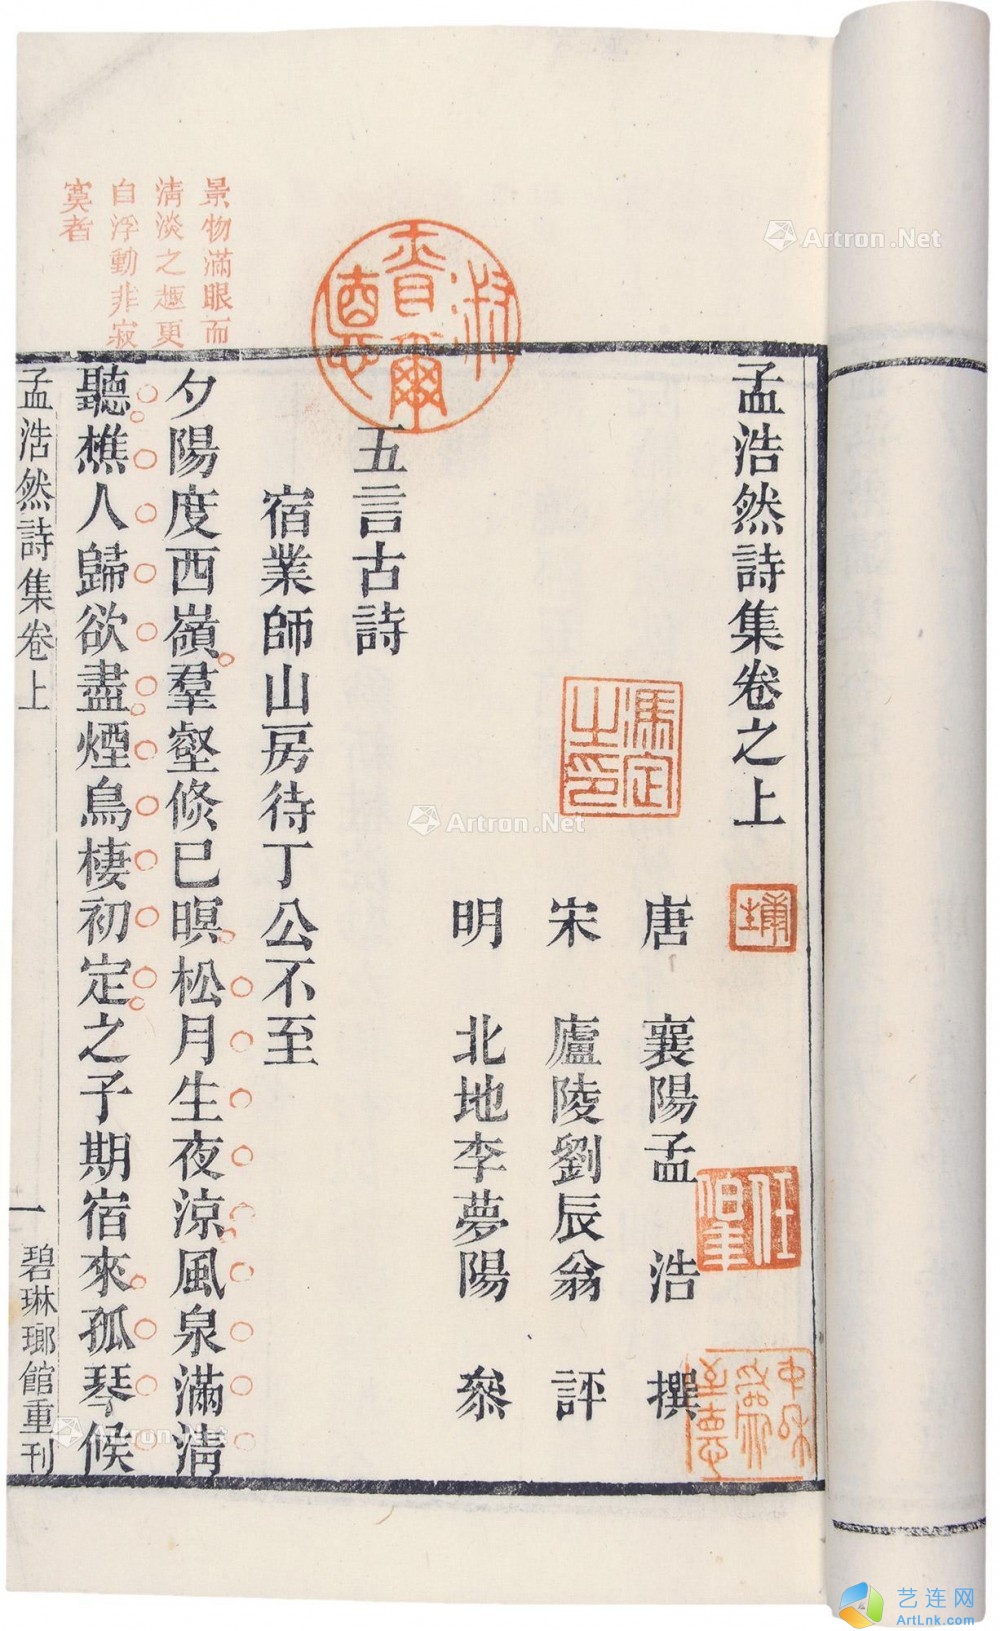 孟浩然詩集卷之上
唐 襄陽孟 浩 撰
宋 廬陵劉辰翁 評
明 北地李夢陽 叅
五言古詩
宿業師山房待丁公不至
夕陽度西嶺羣壑倐已暝松月生夜涼風泉滿清
聽樵人歸欲盡煙鳥棲初定之子期宿來孤琴候
景物滿眼而
清淡之趣更
自浮動非寂
寞者
孟浩然詩集卷上
一
碧琳瑯館重刊
馮定
之印
Artron.Net
Artron.Net
Artron.Net
艺连网
ArtLnk.com